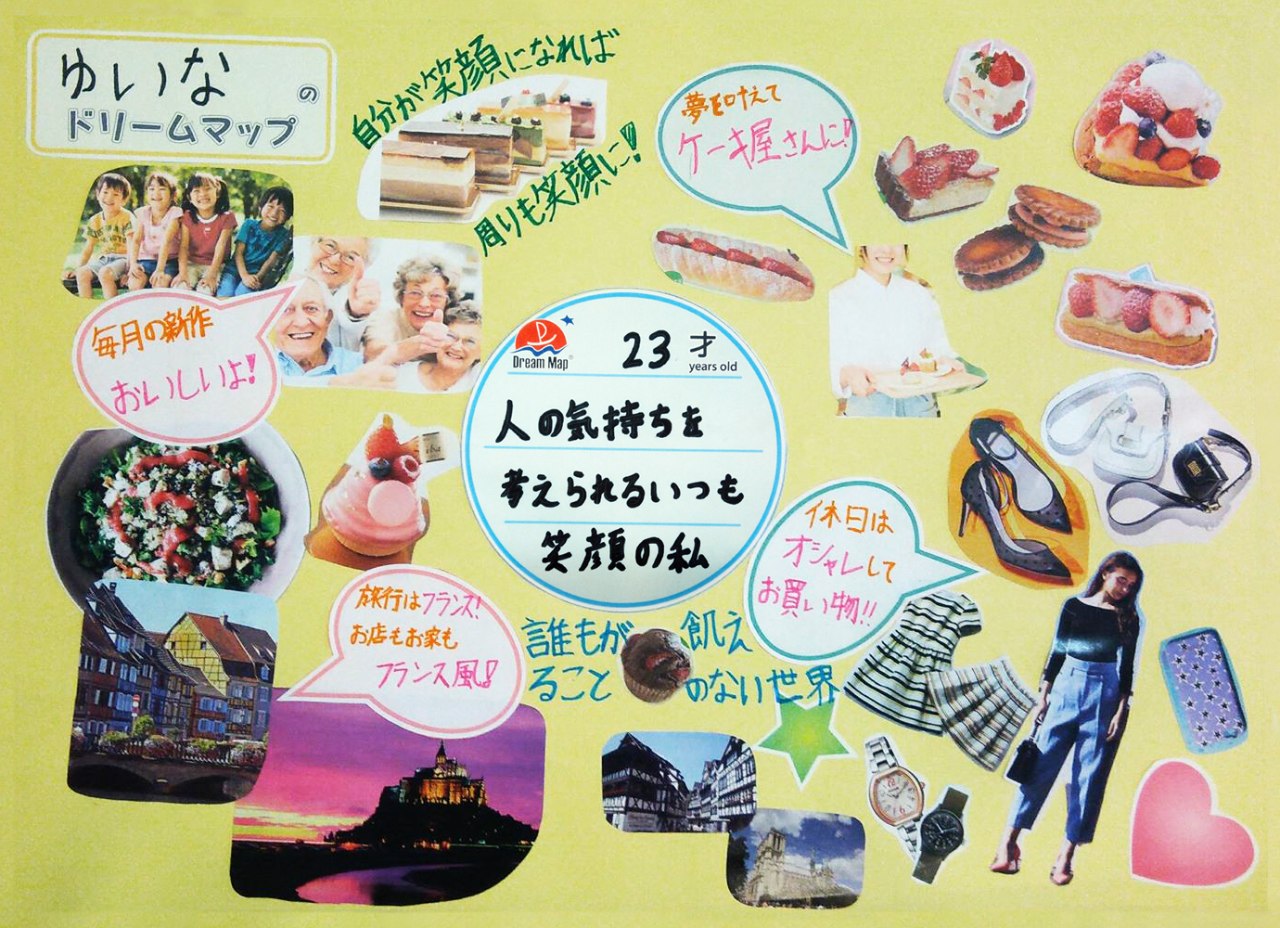 ゆいなの
ドリームマップ
自分が笑顔になれば
周りも笑顔に!
夢を叶えて
ケーキ屋さんに!
毎月の新作
おいしいよ!
Dream Map®
23才
years old
人の気持ちを
考えられるいつも
笑顔の私
休日は
オシャレして
お買い物!!
旅行はフランス!
お店もお家も
フランス風!
誰もが飢え
ることのない世界